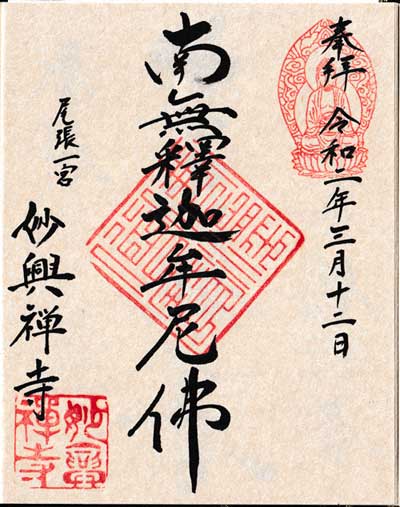 奉拝 令和二年三月十二日
南無釋迦牟尼佛
尾張一宮
妙興禅寺
妙興禅寺